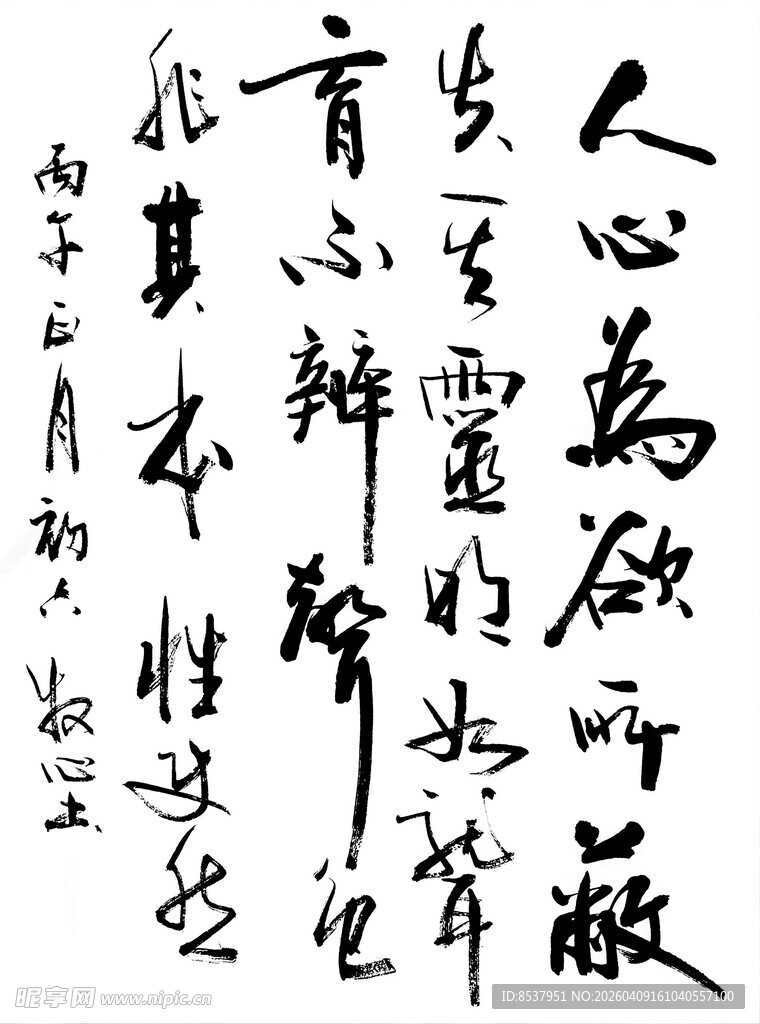 人心為欲所蔽
失一失靈明如聾
盲不辨聲色
非其本性使然
丙午正月初六牧心士
昵享网 www.nipic.cn
ID:8537951 NO:20260409161040557100